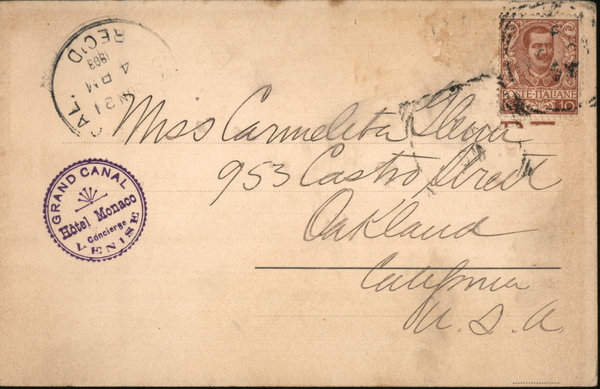 REC'D
1903
4 PM
21
CAL.
POSTE·ITALIANE
10
Miss Carmelita
953 Castro Street
Oakland
California
U. S. A.
GRAND CANAL
Hôtel Monaco
Concierge
VENISE